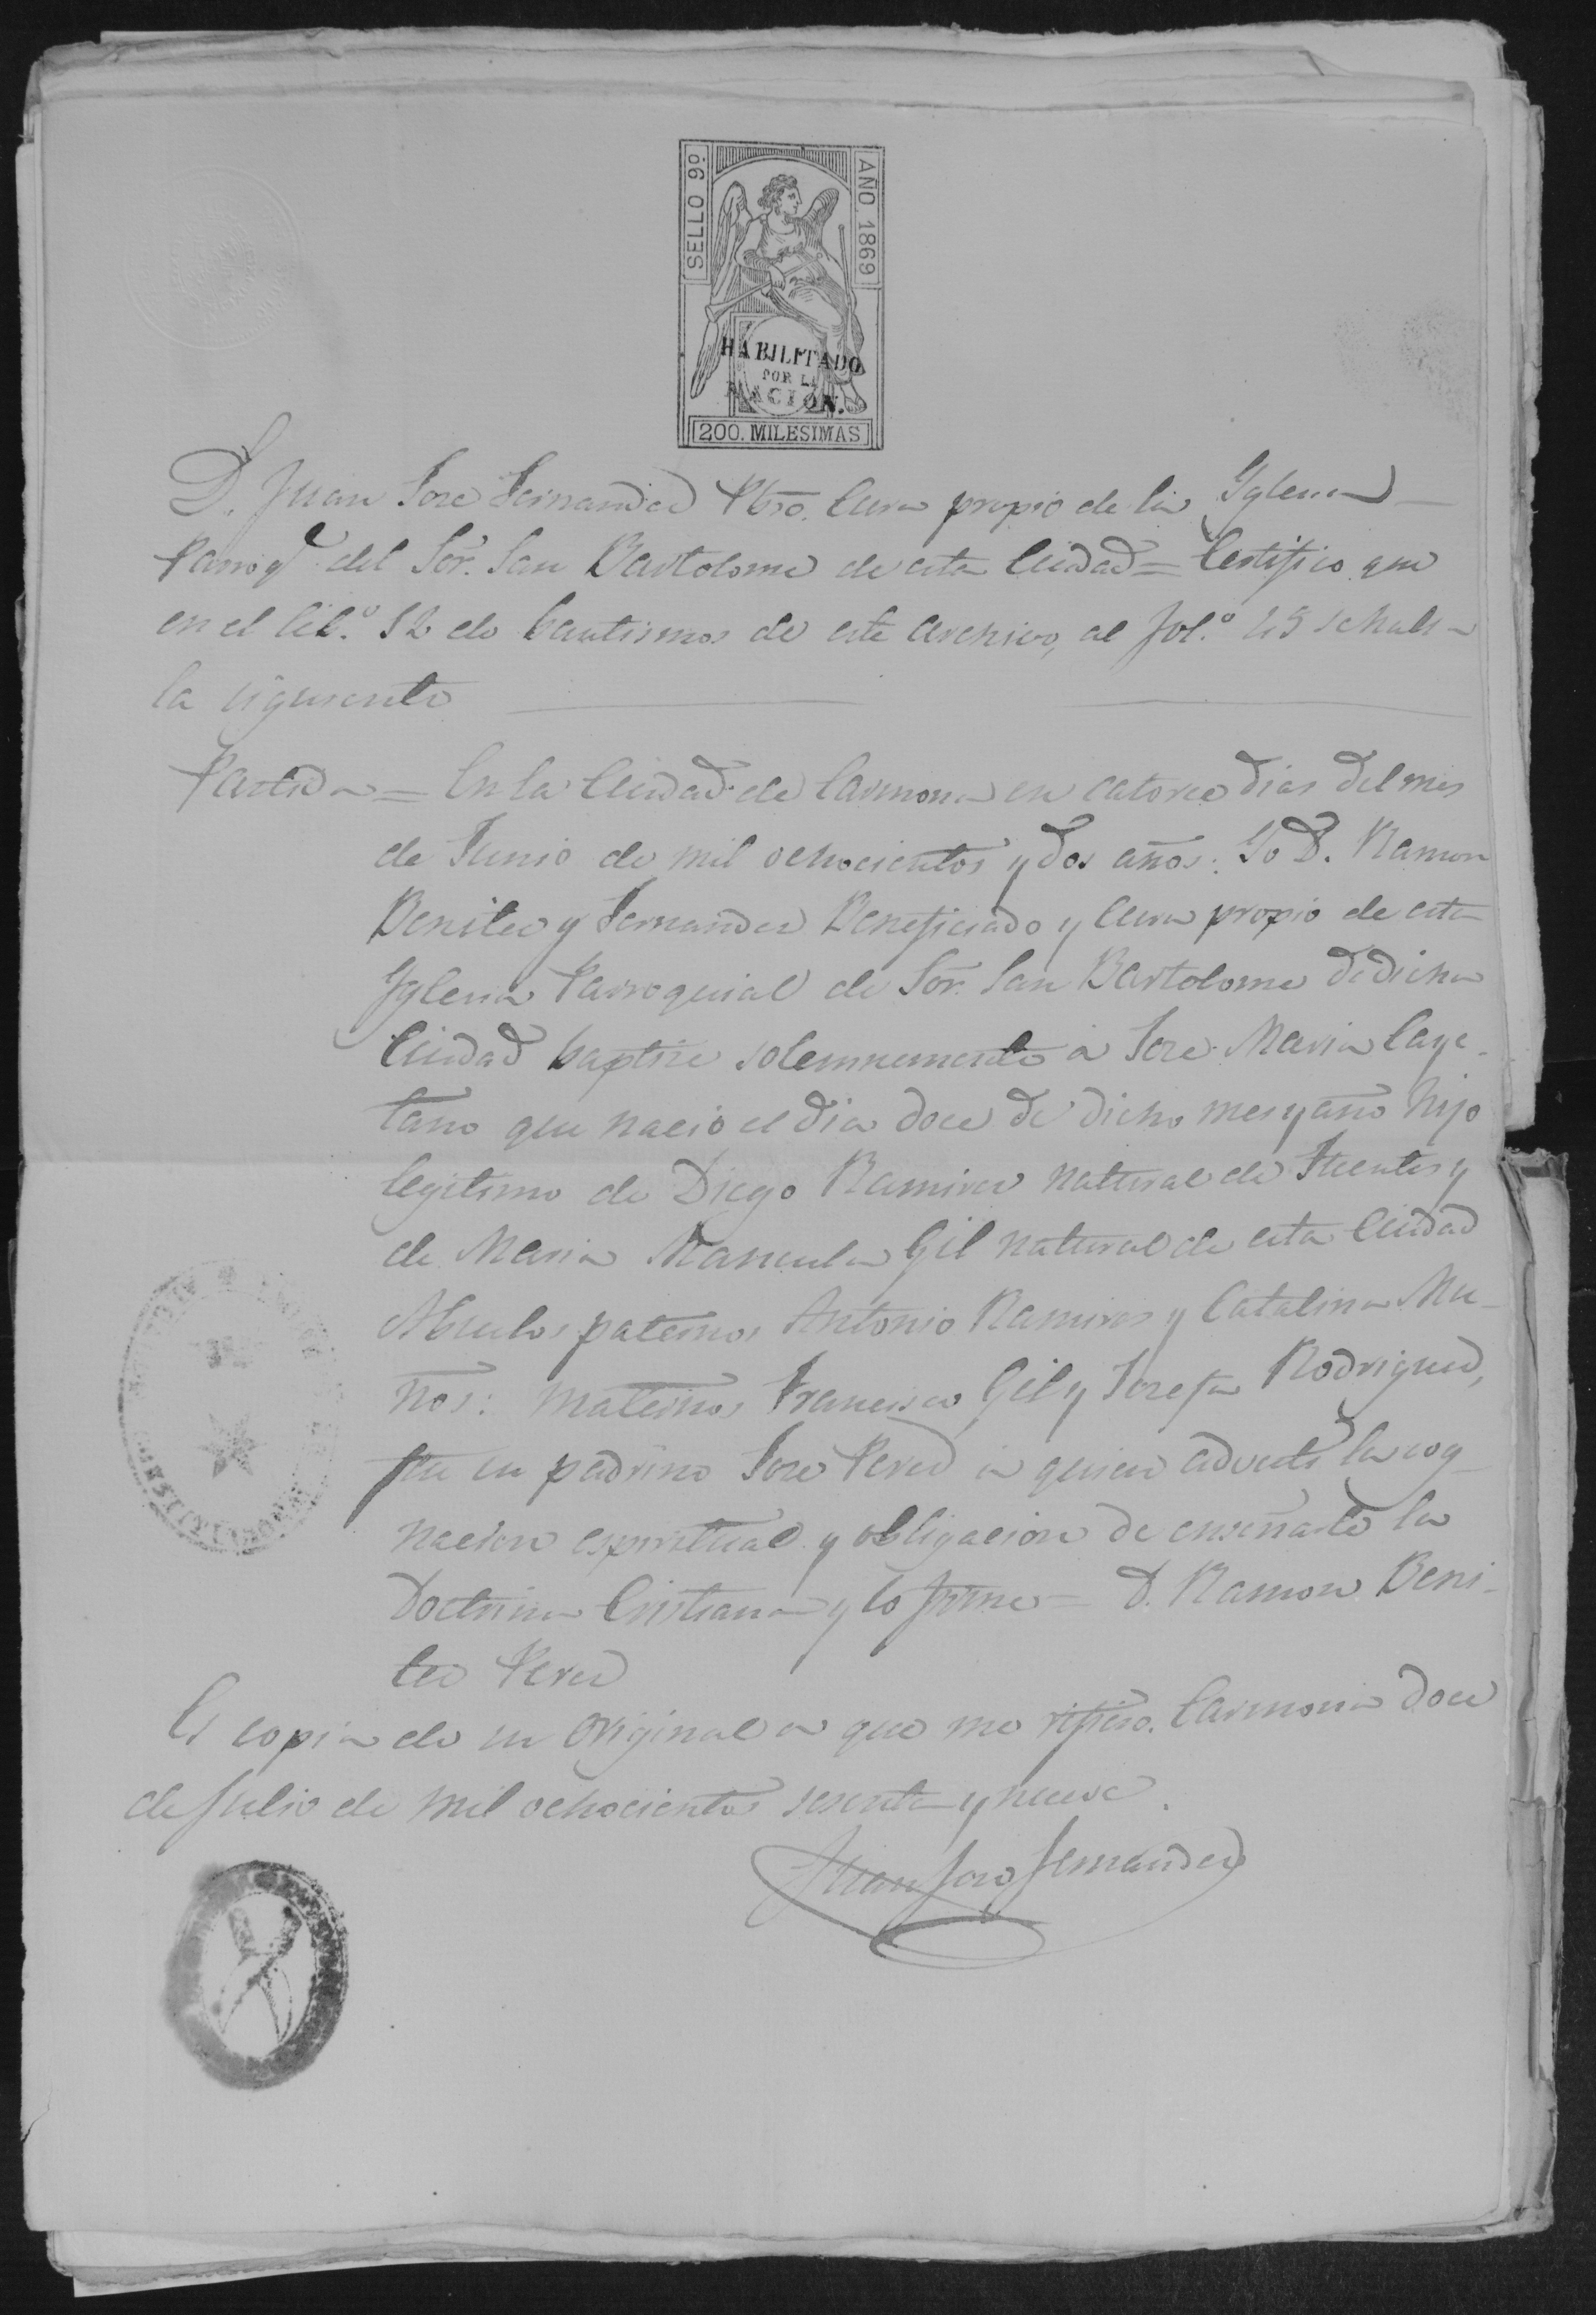 SELLO 9º
AÑO 1869
HABILITADO
POR LA
NACION.
200. MILESIMAS
D. Juan Jose Fernandez Pbro. Cura propio de la Yglesia
Parroql. del Sor. San Bartolome de esta Ciudad = Certifico que
en el lib.º 12 de bautismos de este archivo, al fol.º se halla
la siguiente
Partida = En la Ciudad de Carmona en catorce dias del mes
de Junio de mil ochocientos y dos años: Yo D. Ramon
Benitez y Fernandez Beneficiado y Cura propio de esta
Yglesia Parroquial de Sor. San Bartolome de dicha
Ciudad baptize solemnemente a Jose Maria Caye-
tano que nacio el dia doce de dicho mes y año hijo
legitimo de Diego Ramirez natural de Fuentes y
de Maria Manuela Gil natural de esta Ciudad
Abuelos paternos Antonio Ramires y Catalina Mu-
ños: maternos Francisco Gil y Josefa Rodriguez,
fue su padrino Jose Perez a quien adverti la cog-
nacion espiritual y obligacion de enseñarle la
Doctrina Cristiana y lo firme = D. Ramon Beni-
tez Perez
Es copia de su original a que me refiero. Carmona doce
de Julio de mil ochocientos sesenta y nueve.
Juan Jose Fernandez